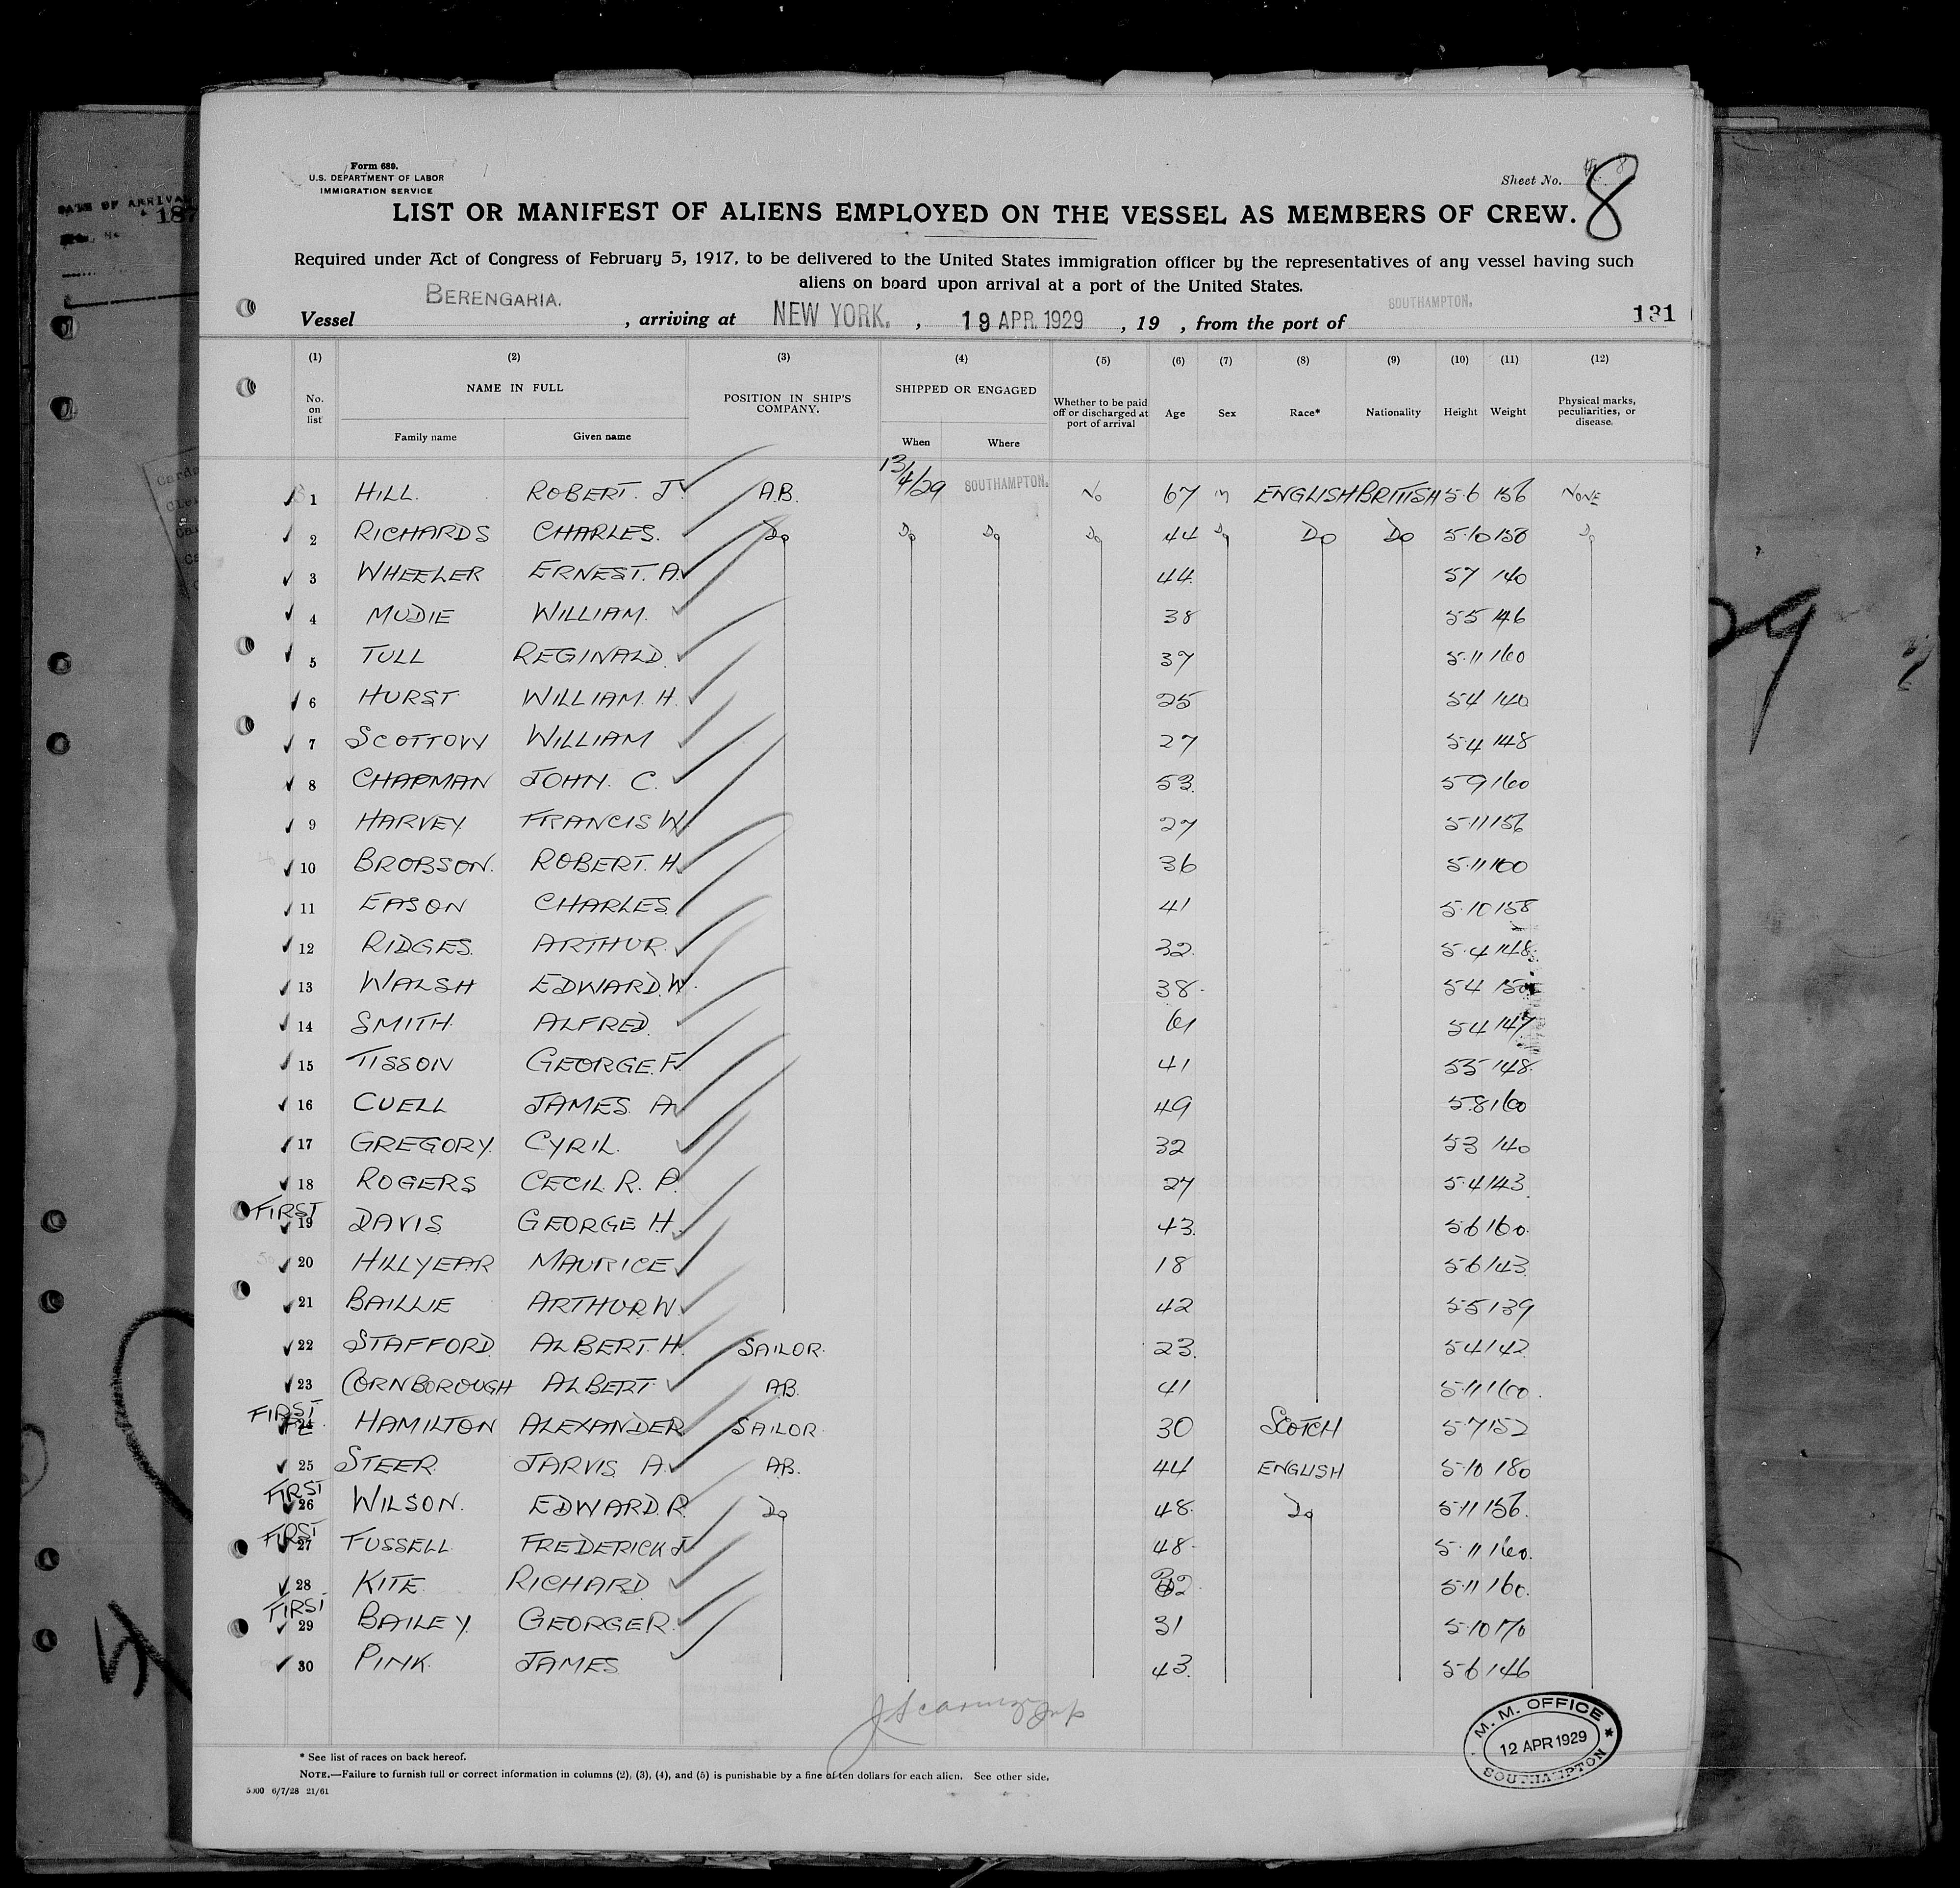 DATE OF ARRIVAL
187
Form 680.
U.S. DEPARTMENT OF LABOR
IMMIGRATION SERVICE
Sheet No. 8
8
LIST OR MANIFEST OF ALIENS EMPLOYED ON THE VESSEL AS MEMBERS OF CREW.
Required under Act of Congress of February 5, 1917, to be delivered to the United States immigration officer by the representatives of any vessel having such
aliens on board upon arrival at a port of the United States.
Vessel BERENGARIA. , arriving at NEW YORK. , 19 APR. 1929 , 19 , from the port of SOUTHAMPTON. 131
(1) (2) (3) (4) (5) (6) (7) (8) (9) (10) (11) (12)
No. on list NAME IN FULL Family name Given name POSITION IN SHIP'S COMPANY. SHIPPED OR ENGAGED When Where Whether to be paid off or discharged at port of arrival Age Sex Race* Nationality Height Weight Physical marks, peculiarities, or disease.
1 HILL. ROBERT. J A.B. 13/4/29 SOUTHAMPTON. No 67 m ENGLISH BRITISH 5 6 156 NONE
2 RICHARDS CHARLES. Do Do Do Do 44 Do Do Do 5.10 158 Do
3 WHEELER ERNEST. A. 44. 5 7 140
4 MUDIE WILLIAM. 38 5 5 146
5 TULL REGINALD. 37 5.11 160
6 HURST WILLIAM. H. 25 5 4 140
7 SCOTTOW WILLIAM 27 5 4 148
8 CHAPMAN JOHN. C. 53. 5 9 160
9 HARVEY FRANCIS W. 27 5.11 156
10 BROBSON. ROBERT. H. 36 5.11 160
11 EASON CHARLES. 41 5.10 158
12 RIDGES. ARTHUR. 32. 5.4 148.
13 WALSH EDWARD. W. 38. 5 4 150
14 SMITH. ALFRED. 61 5 4 147
15 TISSON GEORGE. F. 41 5 5 148.
16 CUELL JAMES A. 49 5.8 160
17 GREGORY. CYRIL. 32 5 3 140
18 ROGERS CECIL. R. P. 27 5.4 143.
FIRST 19 DAVIS. GEORGE H. 43. 5 6 160.
20 HILLYEAR MAURICE 18 5 6 143.
21 BAILLIE ARTHUR W. 42 5 5 139
22 STAFFORD. ALBERT. H. SAILOR. 23. 5 4 142.
23 CORNBOROUGH ALBERT. A.B. 41 5.11 160.
FIRST 24 HAMILTON ALEXANDER SAILOR. 30 SCOTCH 5.7 152
25 STEER. JARVIS A. A.B. 44 ENGLISH 5.10 180
FIRST 26 WILSON. EDWARD. R. Do 48. Do 5.11 156.
FIRST 27 FUSSELL FREDERICK J 48. 5.11 160.
28 KITE. RICHARD 5.11 160.
FIRST 29 BAILEY. GEORGE R. 31 5.10 170
30 PINK. JAMES 43. 5.6 146
M. M. OFFICE
12 APR 1929
SOUTHAMPTON
* See list of races on back hereof.
NOTE.—Failure to furnish full or correct information in columns (2), (3), (4), and (5) is punishable by a fine of ten dollars for each alien. See other side.
5000 6/7/28 21/61